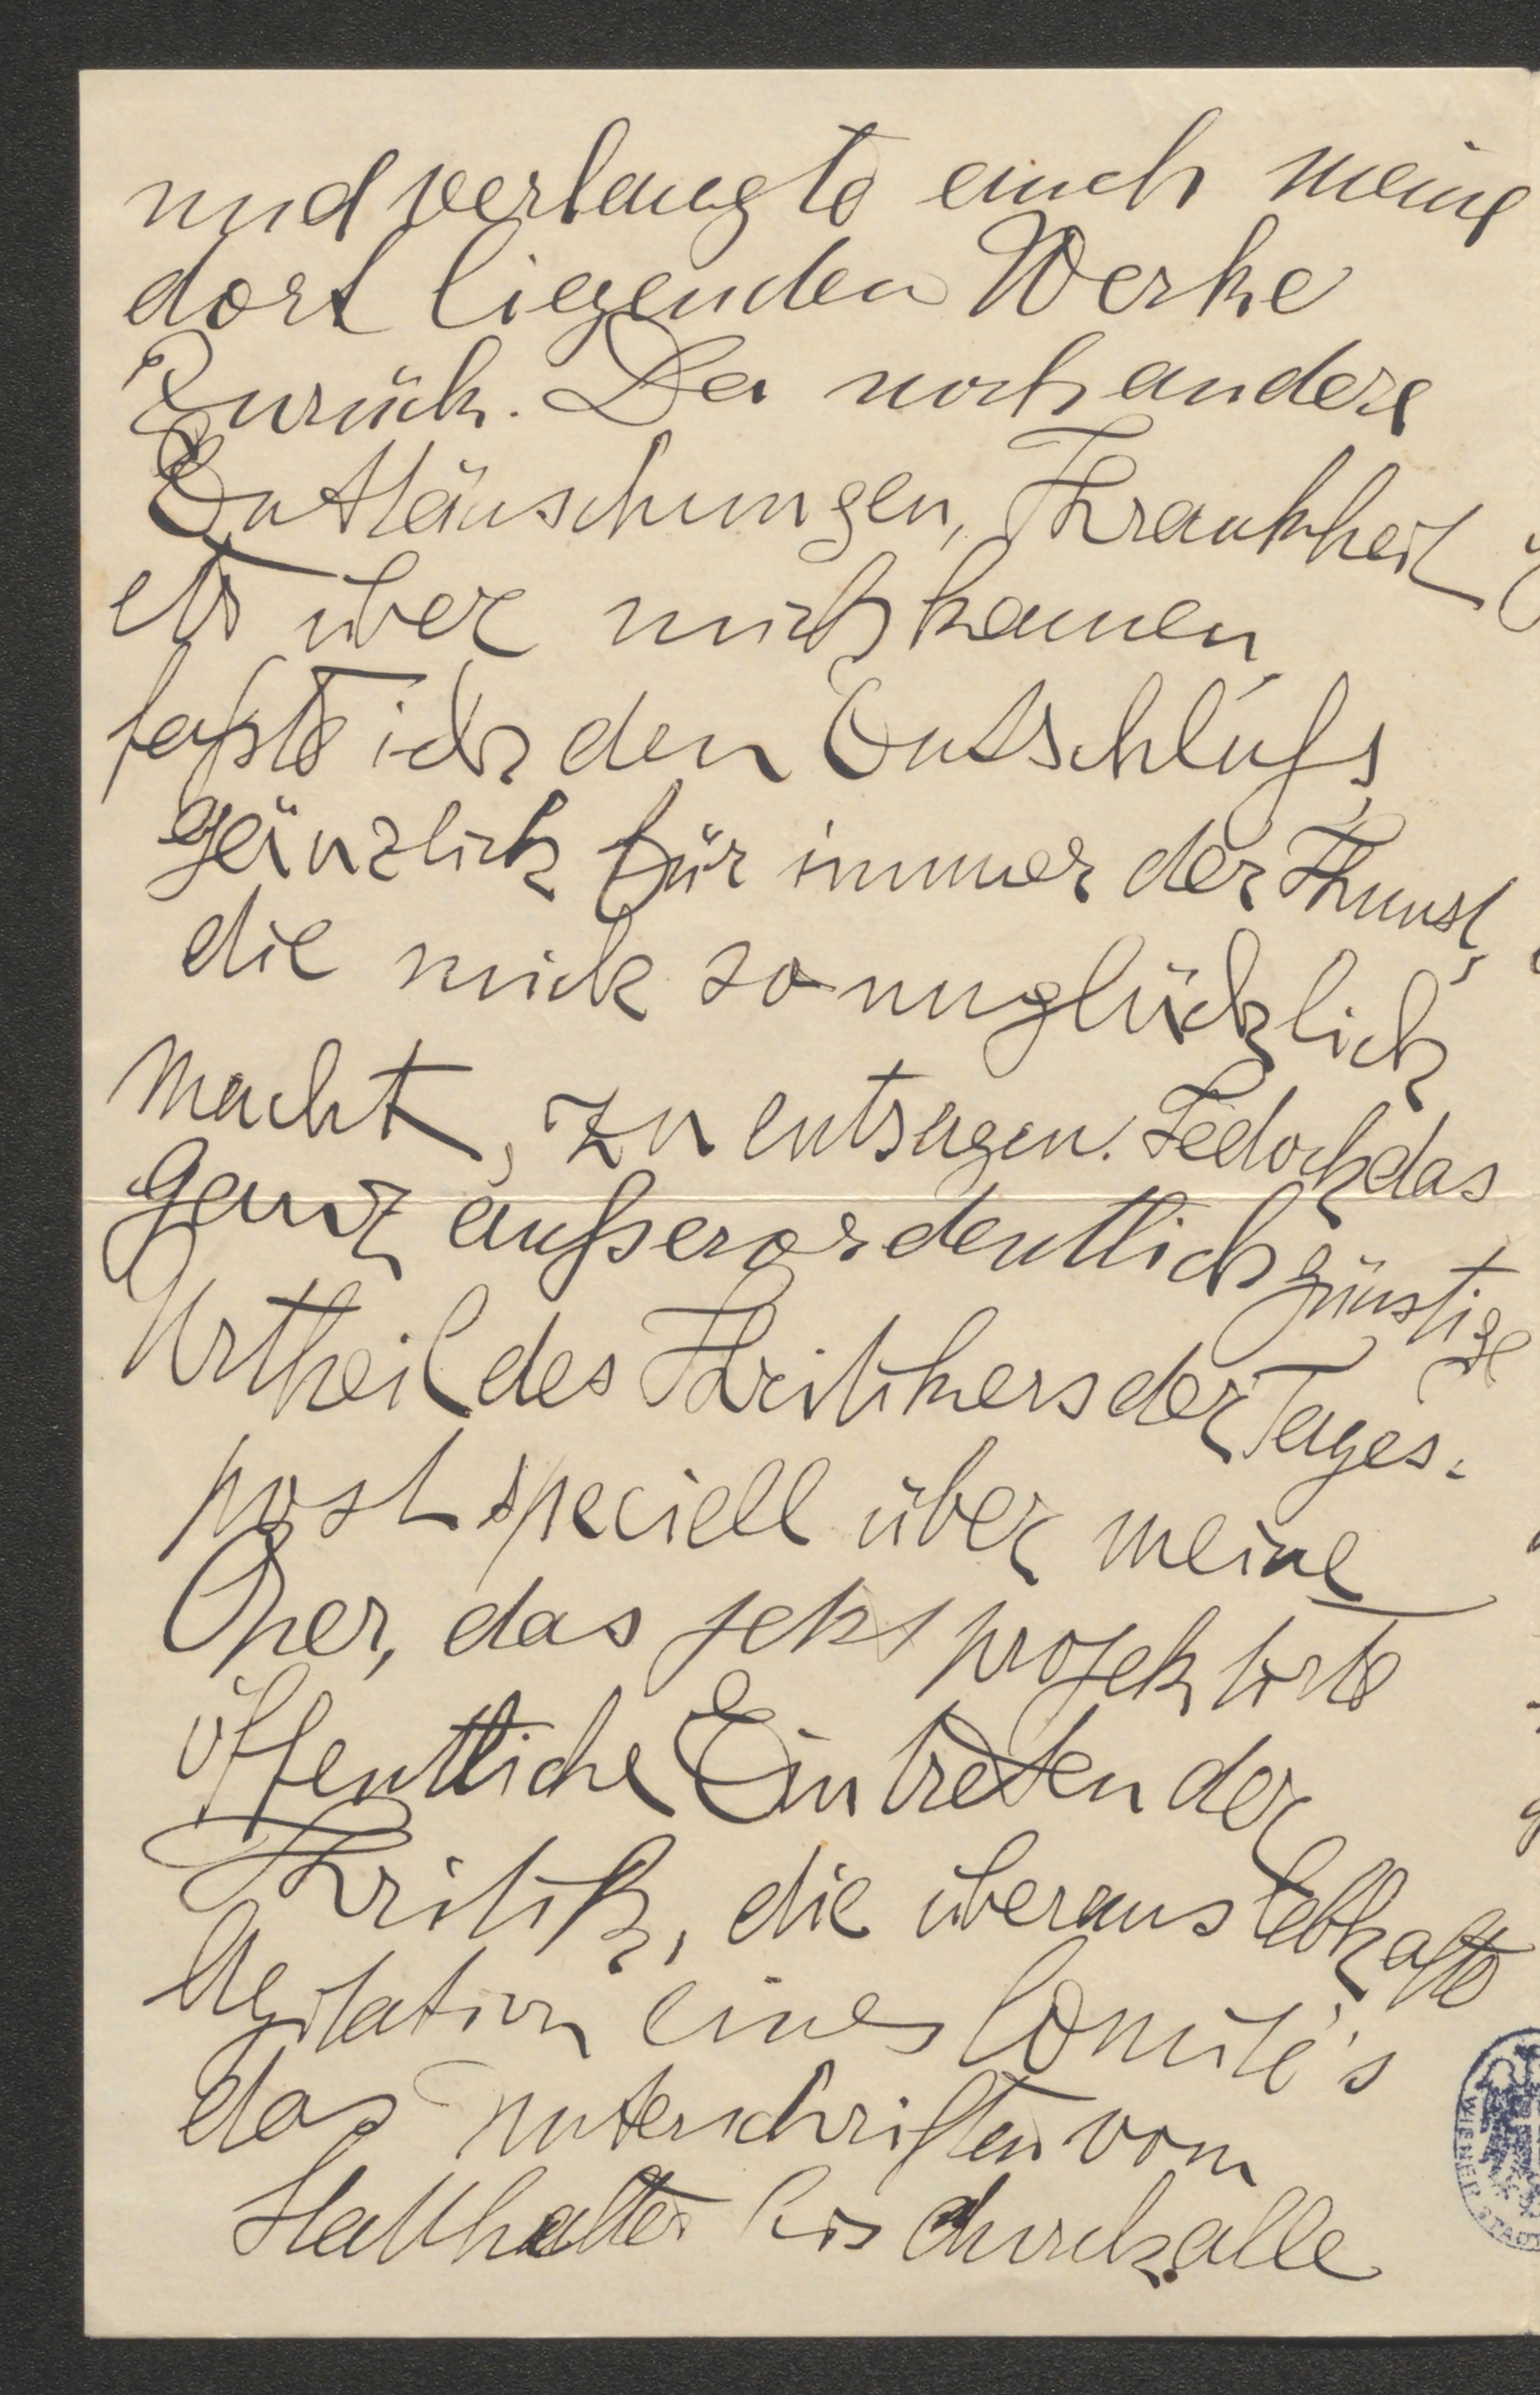 und verlangte auch meine
dort liegenden Werke
zurück. Da noch andere
Enttäuschungen, Krankheit
etc über mich kamen,
faßte ich den Entschluß,
gänzlich für immer der Kunst,
die mich so unglücklich
macht, zu entsagen. Jedoch das
ganz außerordentlich günstige
Urtheil des Kritikers der Tages-
post speciell über meine
Oper, das jetzt projektirte
öffentliche Eintreten der
Kritik, die überaus lebhafte
Agitation eines Comité's
das Unterschriften vom
Statthalter bis durch alle
WIENER STADT